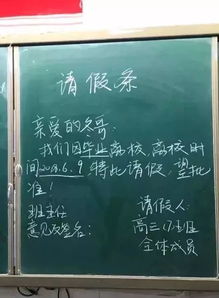 请假条
亲爱的冬哥:
我们因毕业离校,离校时
间2018.6.9 特此请假,望批
准!
班主任
意见及签名:
请假人:
高三17班
全体成员